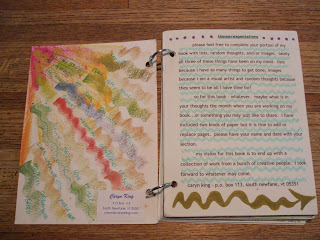 Caryn King
P.O. Box 113
South Newfane, VT 05351
please feel free to complete your portion of my
book with lists, random thoughts, and/or images. lately
all three of these things have been on my mind. lists
because i have so many things to get done, images
because i am a visual artist and random thoughts because
they seem to be all i have time for!
so for this book - whatever. maybe what is in
your thoughts the month when you are working on my
book....or something you may just like to share. i have
included two kinds of paper but it is fine to add or
replace pages. please have your name and date with your
section.
my vision for this book is to end up with a
collection of work from a bunch of creative people. i look
forward to whatever may come.
caryn king - p.o. box 113, south newfane, vt 05351